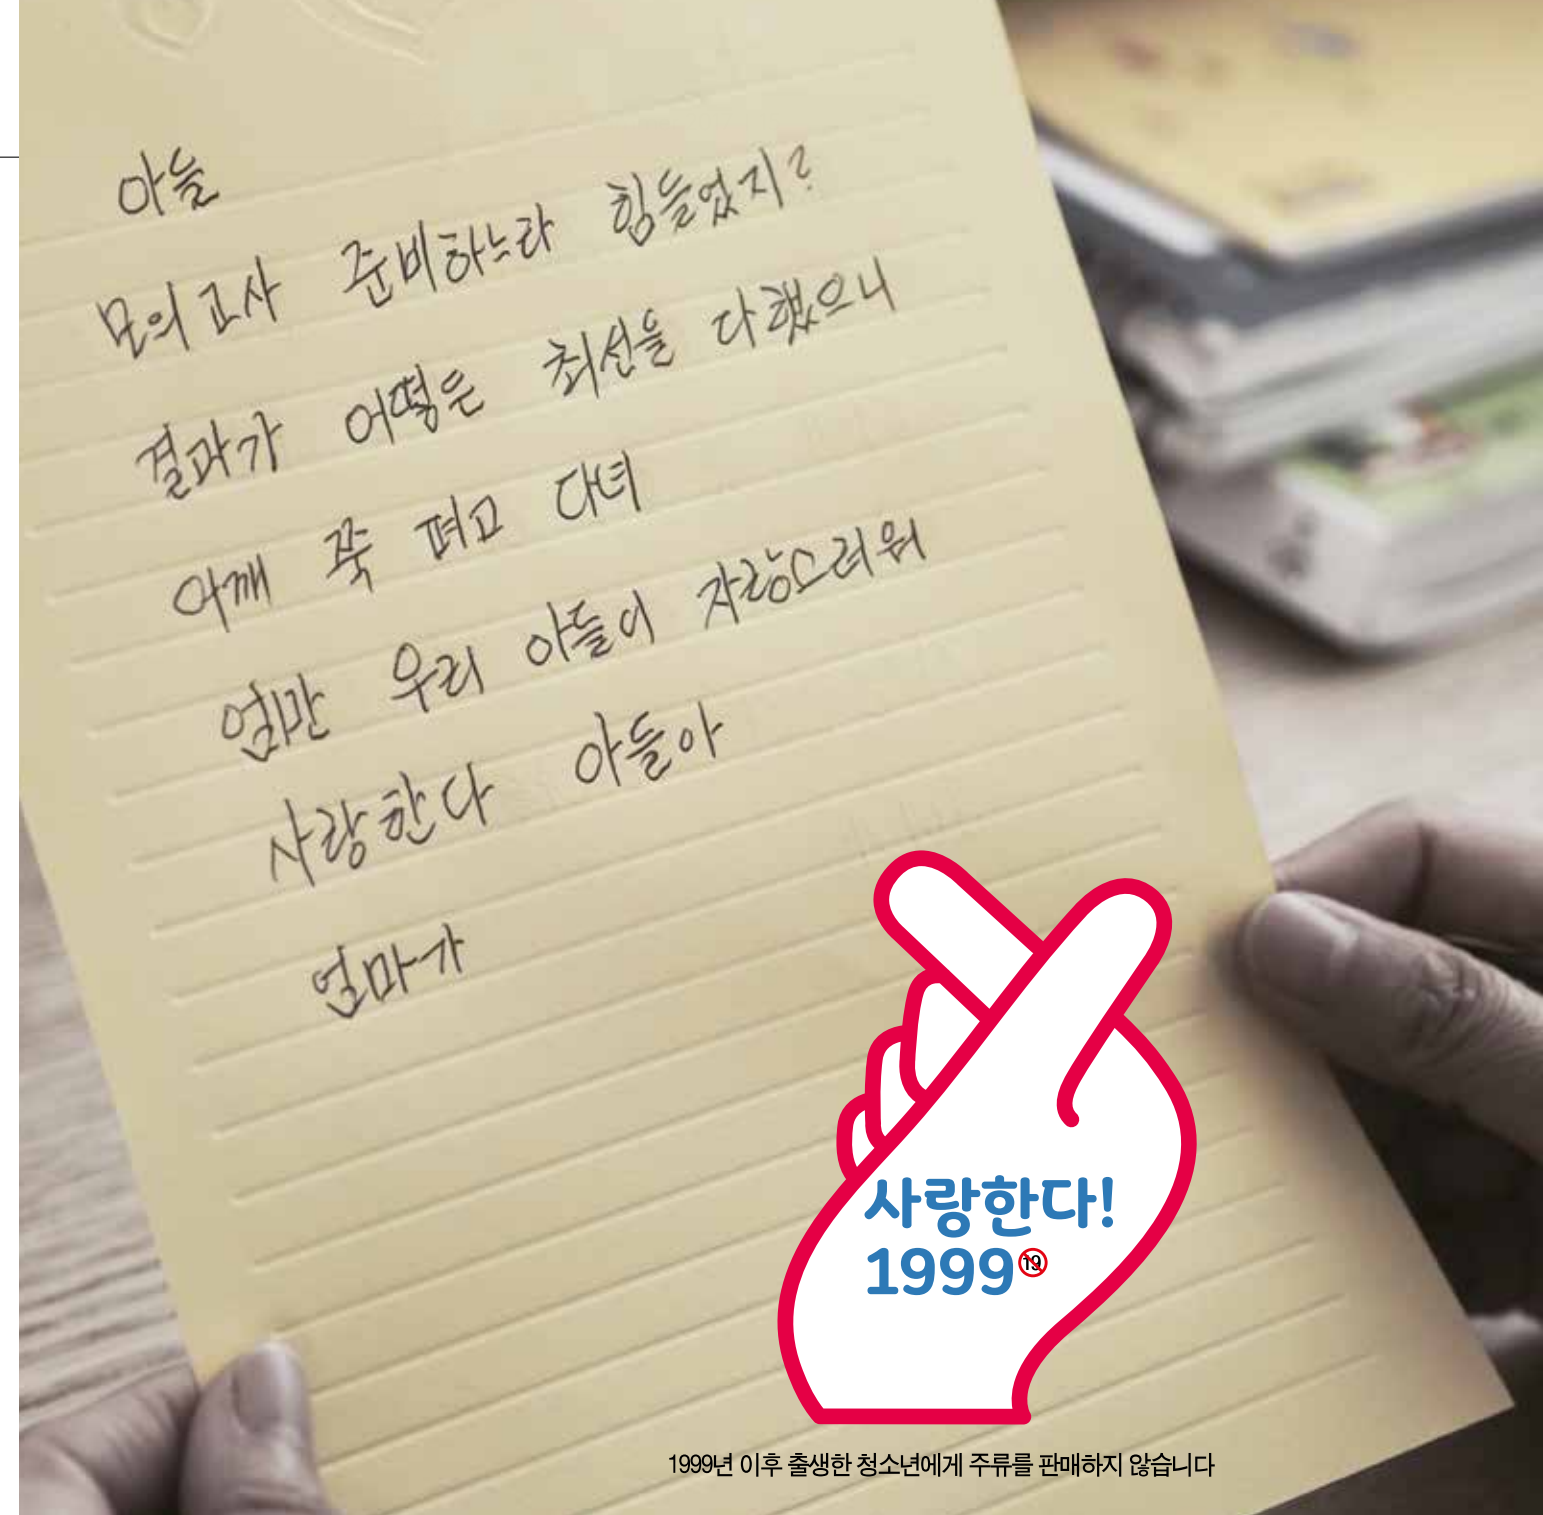 아들
모의고사 준비하느라 힘들었지?
결과가 어떻든 최선을 다했으니
어깨 쭉 펴고 다녀
엄만 우리 아들이 자랑스러워
사랑한다 아들아
엄마가
사랑한다!
1999 19
1999년 이후 출생한 청소년에게 주류를 판매하지 않습니다